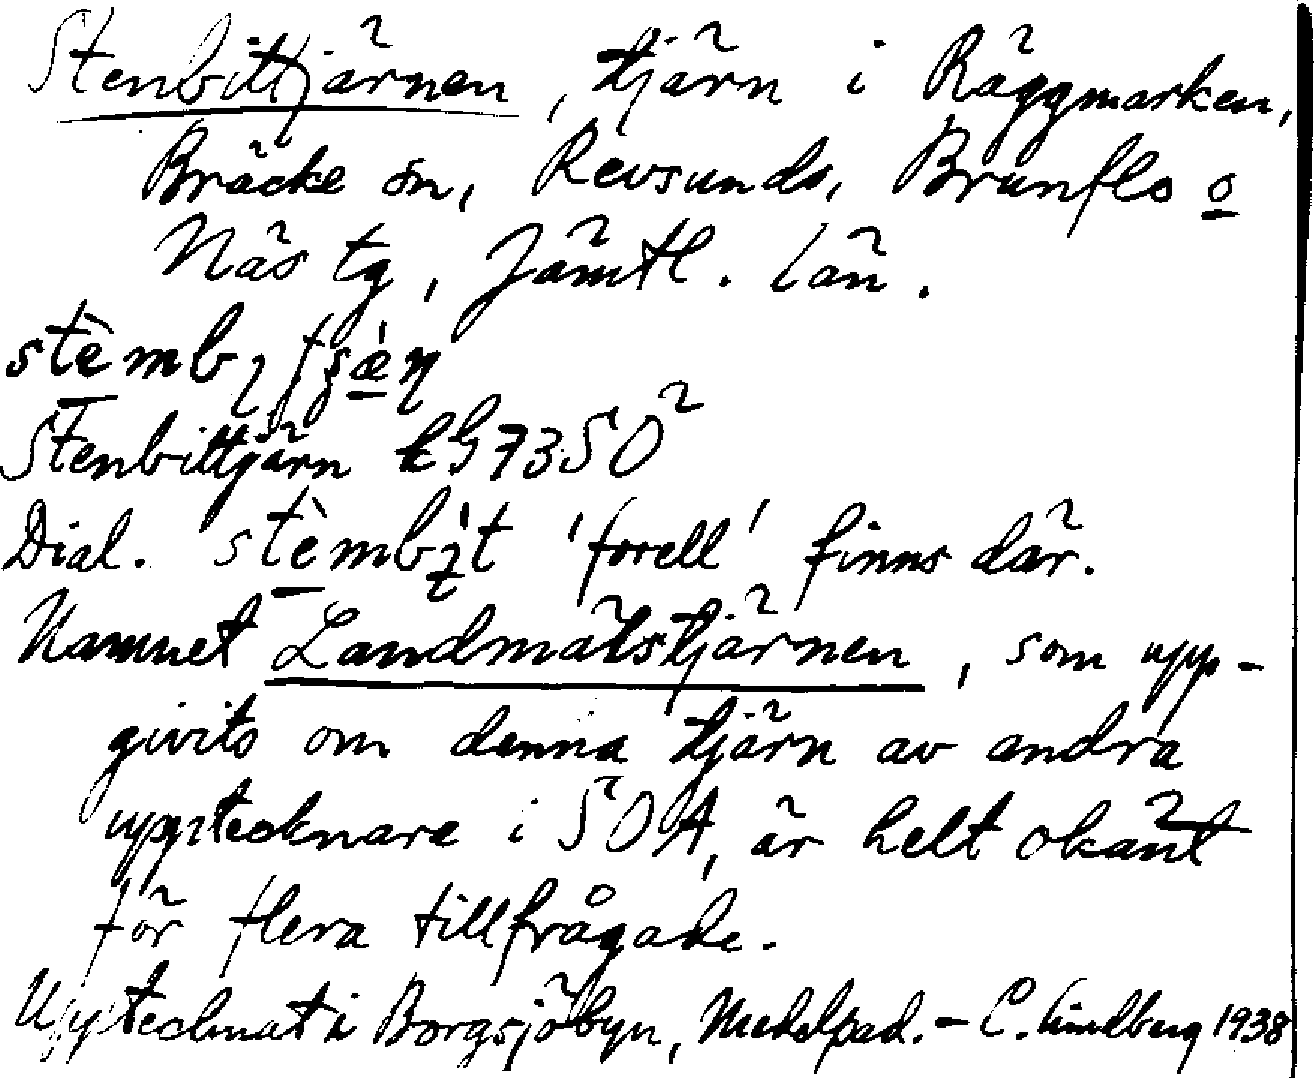 Stenbittjärnen, tjärn i Räggmarken,
Bräcke sn, Revsunds, Brunflo o
Näs tg, Jämtl. län.
Stenbittjärn
Dial. 'forell' finns där.
Namnet Landmätstjärnen, som upp-
givits om denna tjärn av andra
upptecknare i SOA, är helt okänt
för flera tillfrågade.
Upptecknat i Borgsjöbyn, Medelpad. - C. Lindberg 1938